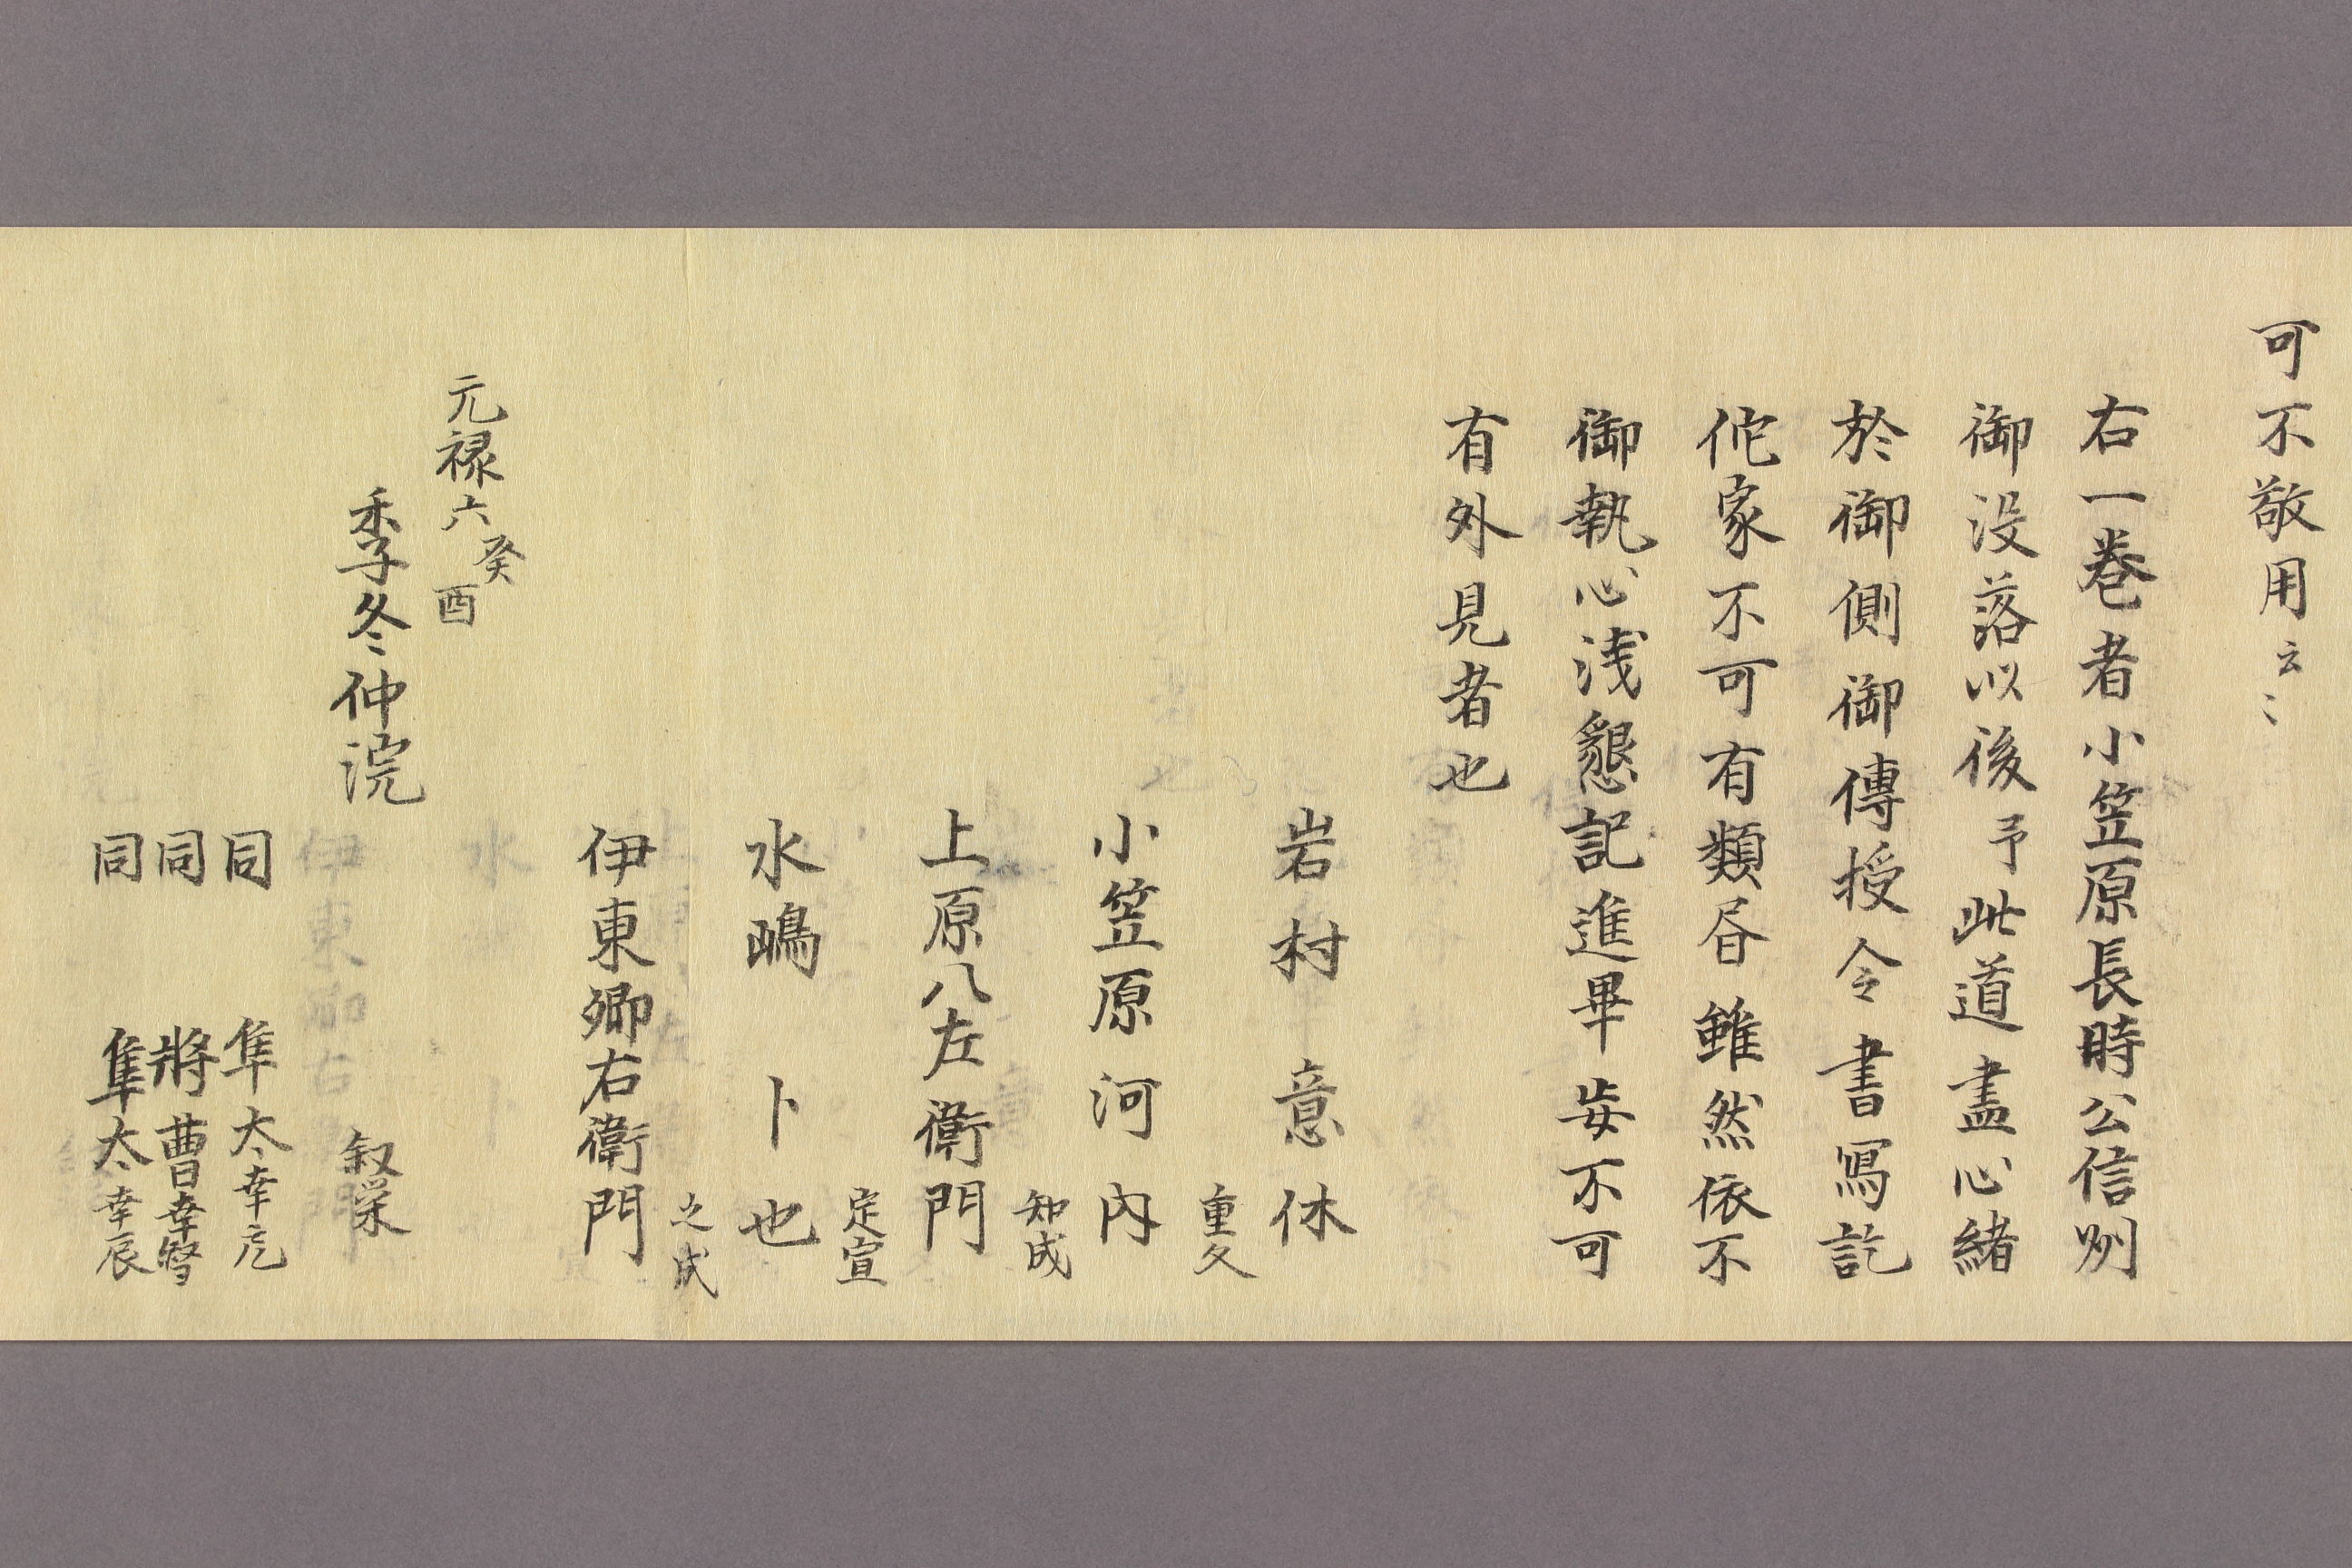 可不敬用云〻
右一巻者小笠原長時公信州
御没落以後予此道盡心緒
於御側御傳授令書寫訖
佗家不可有類昏雖然依不
御執心浅懇記進畢妄不可
有外見者也
岩村意休
重久
小笠原河内
知成
上原八左衛門
定宣
水嶋卜也
之成
伊東卿右衛門
元禄六癸酉
季冬仲浣
叙栄
同 隼太幸亮
同 將曹幸
同 隼太幸辰